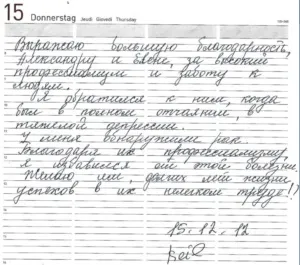 15 Donnerstag Jeudi Giovedì Thursday
Выражаю большую благодарность,
Александру и Елене, за высокий
профессионализм и заботу к
людям.
Я обратился к ним, когда
был в полном отчаянии, в
тяжелой депрессии.
У меня обнаружили рак.
Благодаря их профессионализму,
я избавился от этой болезни.
Желаю им, долгих лет жизни,
успехов в их нелегком труде!!
15.12.12